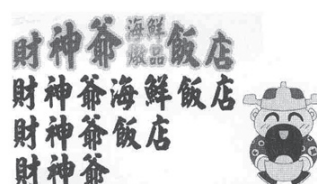 財神爺海鮮燉品飯店
財神爺海鮮飯店
財神爺飯店
財神爺